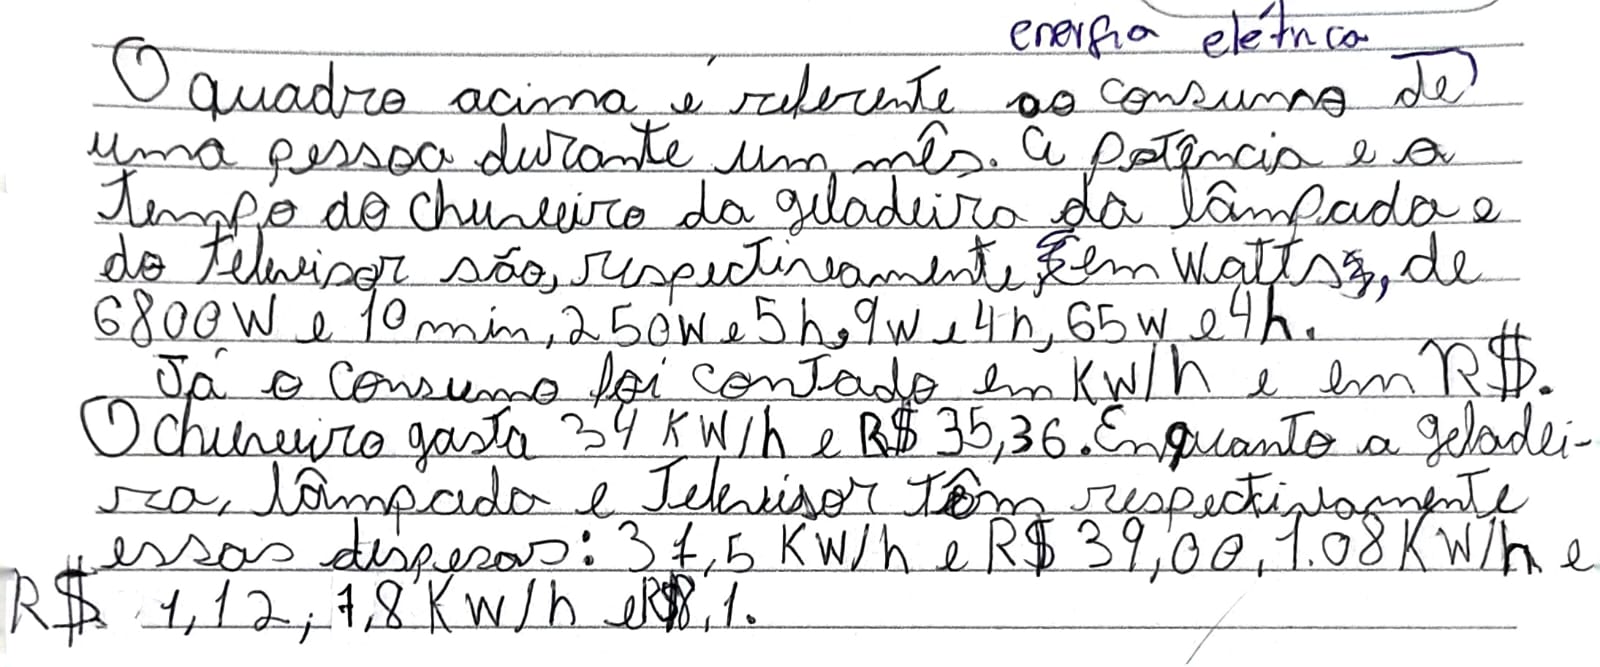 energia elétrica
O quadro acima é referente ao consumo de
uma pessoa durante um mês. A potência e o
tempo do chuveiro da geladeira da lâmpada e
do televisor são, respectivamente, em Watts, de
6800W e 10 min, 250W e 5h, 9w e 4h, 65w e 4h.
Já o consumo foi contado em KW/h e em R$.
O chuveiro gasta 34 KW/h e R$ 35,36. Enquanto a geladei-
ra, lâmpada e Televisor têm respectivamente
essas despesas: 37,5 KW/h e R$ 39,00, 1.08 KW/h e
R$ 1,12; 7,8 KW/h e R$8,1.